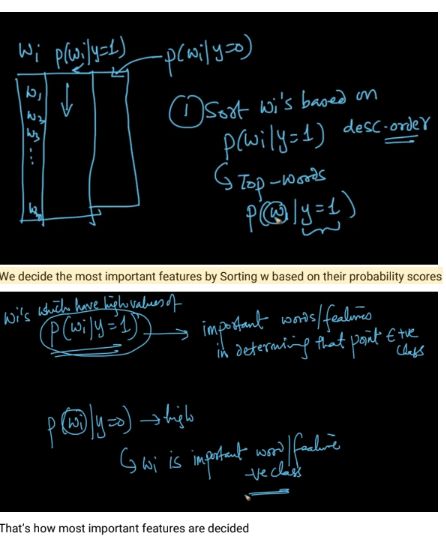 wi p(wi|y=1) p(wi|y=0)
w1
w2
w3
① Sort wi's based on
p(wi|y=1) desc-order
↳ Top-words
p(wi|y=1)
We decide the most important features by Sorting w based on their probability scores
wi's which have high values of
p(wi|y=1) → important words/features
in determining that point ∈ +ve
class
p(wi|y=0) → high
↳ wi is important word/feature
-ve class
That's how most important features are decided